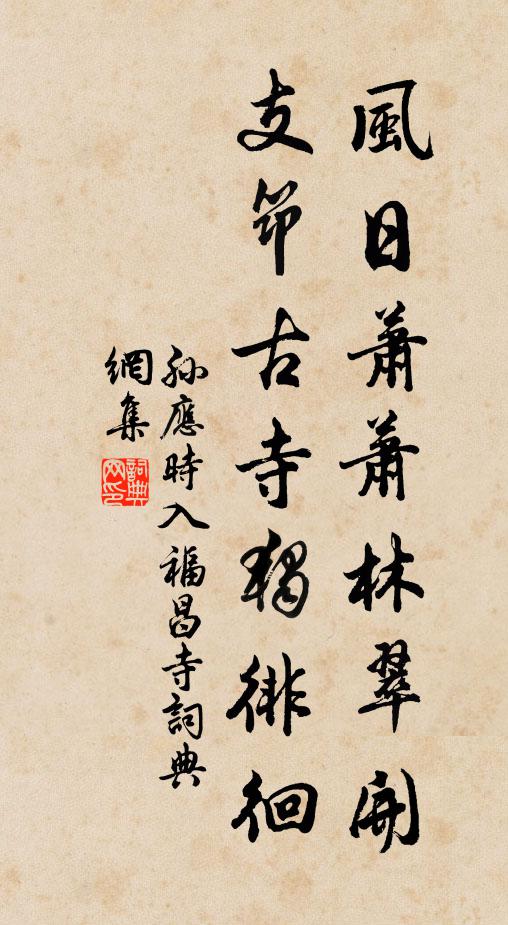 風日蕭蕭林翠開
支筇古寺獨徘徊
孫應時入福昌寺詞典
網集
詞典網印